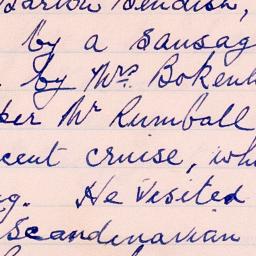 Barton Bendish,
by a sausag
by Mrs. Boken
per Mr Rumball
cent cruise, wh
g. He visited
Scandinavian